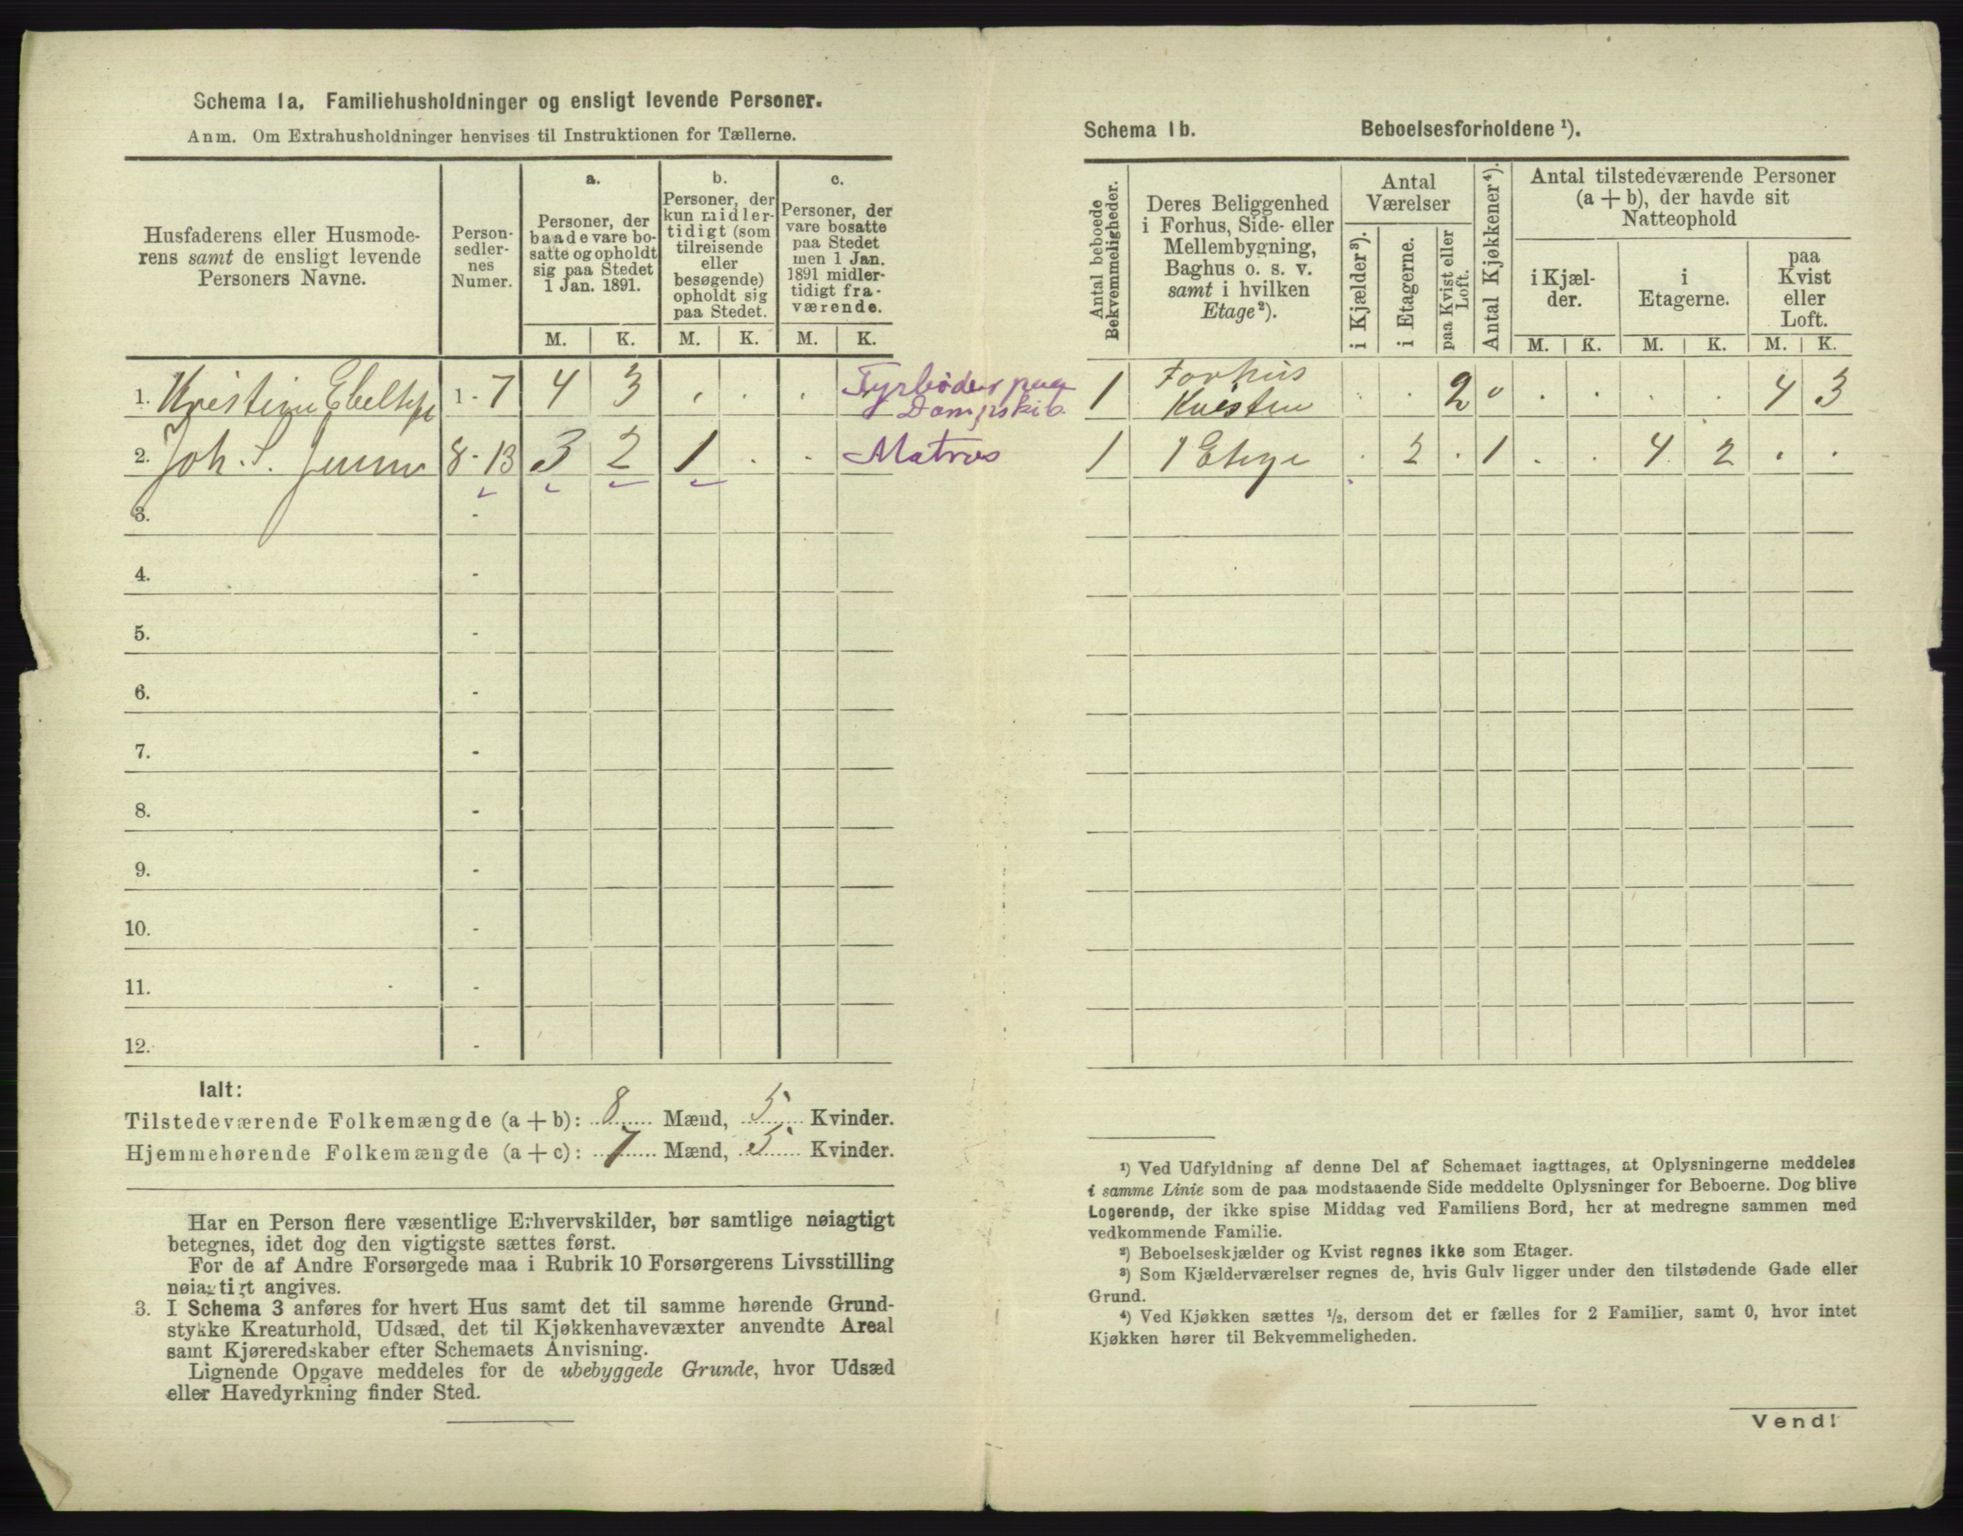 Schema 1a. Familiehusholdninger og ensligt levende Personer.
Anm. Om Extrahusholdninger henvises til Instruktionen for Tællerne.
Husfaderens eller Husmoderens samt de ensligt levende Personers Navne.
Person-sedler-nes Numer.
a.
Personer, der baade vare bosatte og opholdt sig paa Stedet 1 Jan. 1891.
b.
Personer, der kun midlertidigt (som tilreisende eller besøgende) opholdt sig paa Stedet.
c.
Personer, der vare bosatte paa Stedet men 1 Jan. 1891 midlertidigt fraværende.
M. K. M. K. M. K.
1. Kristine 1 - 7 4 3 . . . Fyrbøder paa Dampskib
2. Joh. S. 8 - 13 3 2 1 . . Matros
3. -
4. -
5. -
6. -
7. -
8. -
9. -
10. -
11. -
12. -
Ialt:
Tilstedeværende Folkemængde (a + b): 8 Mænd, 5 Kvinder.
Hjemmehørende Folkemængde (a + c): 7 Mænd, 5 Kvinder.
Har en Person flere væsentlige Erhvervskilder, bør samtlige nøiagtigt
betegnes, idet dog den vigtigste sættes først.
For de af Andre Forsørgede maa i Rubrik 10 Forsørgerens Livsstilling
nøiagtigt angives.
3. I Schema 3 anføres for hvert Hus samt det til samme hørende Grund-
stykke Kreaturhold, Udsæd, det til Kjøkkenhavevæxter anvendte Areal
samt Kjøreredskaber efter Schemaets Anvisning.
Lignende Opgave meddeles for de ubebyggede Grunde, hvor Udsæd
eller Havedyrkning finder Sted.
Schema 1b. Beboelsesforholdene ¹).
Antal beboede Bekvemmeligheder.
Deres Beliggenhed i Forhus, Side- eller Mellembygning, Baghus o. s. v. samt i hvilken Etage ²).
Antal Værelser
i Kjælder ³).
i Etagerne.
paa Kvist eller Loft.
Antal Kjøkkener ⁴).
Antal tilstedeværende Personer (a + b), der havde sit Natteophold
i Kjælder.
i Etagerne.
paa Kvist eller Loft.
M. K. M. K. M. K.
1 Forhus Kvisten . . 2 0 . . . . 4 3
1 1 Etage . 2 . 1 . . 4 2 . .
¹) Ved Udfyldning af denne Del af Schemaet iagttages, at Oplysningerne meddeles
i samme Linie som de paa modstaaende Side meddelte Oplysninger for Beboerne. Dog blive
Logerende, der ikke spise Middag ved Familiens Bord, her at medregne sammen med
vedkommende Familie.
²) Beboelseskjælder og Kvist regnes ikke som Etager.
³) Som Kjælderværelser regnes de, hvis Gulv ligger under den tilstødende Gade eller
Grund.
⁴) Ved Kjøkken sættes ½, dersom det er fælles for 2 Familier, samt 0, hvor intet
Kjøkken hører til Bekvemmeligheden.
Vend!